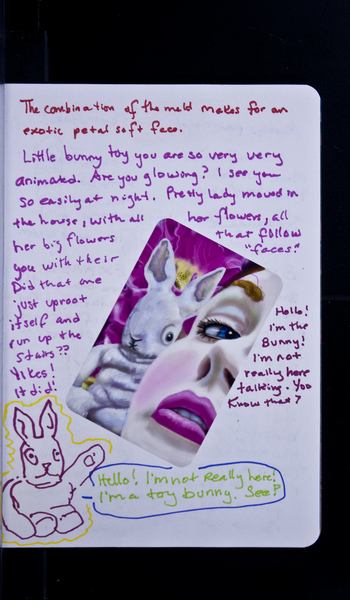 The combination of the meld makes for an
exotic petal soft face.
Little bunny toy you are so very very
animated. Are you glowing? I see you
so easily at night. Pretty lady moved in
the house, with all her flowers, all
her big flowers that follow
you with their "faces"
Did that one
just uproot
itself and
run up the
stairs??
Yikes!
It did!
Hello!
I'm the
Bunny!
I'm not
really here
talking. You
know that?
Hello! I'm not really here!
I'm a toy bunny. See?